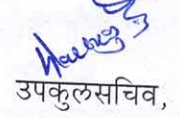 उपकुलसचिव,